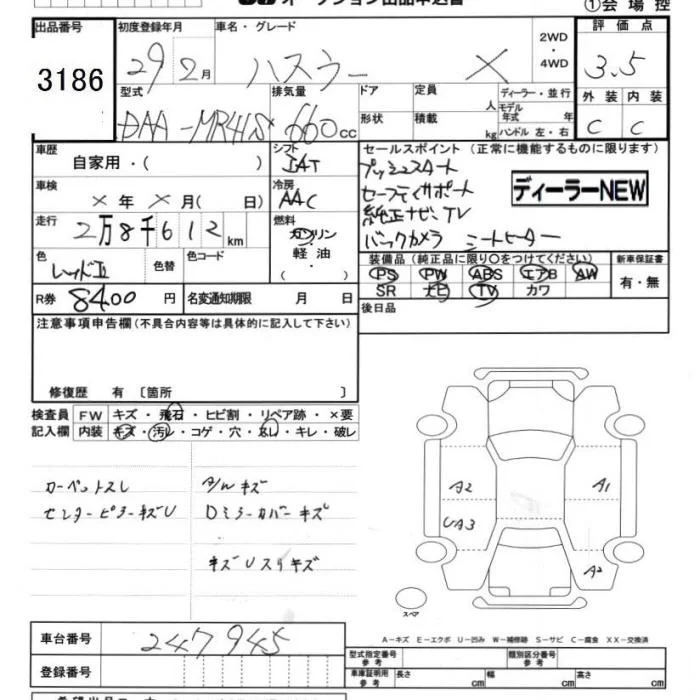 オークション出品申込書
①会場控
出品番号 初度登録年月 車名・グレード 評価点
3186 29年2月 ハスラー X 2WD・4WD 3.5
型式 排気量 ドア 定員 人 ディーラー・並行 外装 内装
DAA-MR41S 660cc 形状 積載 kg モデル年式 年 ハンドル 左・右 C C
車歴 自家用・( ) シフト IAT
セールスポイント (正常に機能するものに限ります)
プッシュスタート
セーフティサポート
純正ナビ、TV
バックカメラ シートヒーター
ディーラーNEW
車検 ×年×月( 日) 冷房 AAC
走行 2万8千612km 燃料 ガソリン・軽油・( )
色 レッドII 色替 色コード
装備品 (純正品に限り○をつけてください) 新車保証書
PS PW ABS エアB AW
SR ナビ TV カワ 有・無
R券 8400円 名変通知期限 月 日
後日品
注意事項申告欄(不具合内容等は具体的に記入して下さい)
修復歴 有 〔箇所 〕
検査員 FW キズ・飛石・ヒビ割・リペア跡・×要
記入欄 内装 キズ・汚レ・コゲ・穴・スレ・キレ・破レ
カーペットスレ A/Wキズ
センターピラーキズU Dミラーカバーキズ
キズUスリキズ
A2 A1
UA3
A2
スペア
A-キズ E-エクボ U-凹み W-補修跡 S-サビ C-腐食 XX-交換済
車台番号 247945
型式指定番号 参考 類別区分番号 参考
登録番号
車庫証明用 参考 長さ cm 幅 cm 高さ cm